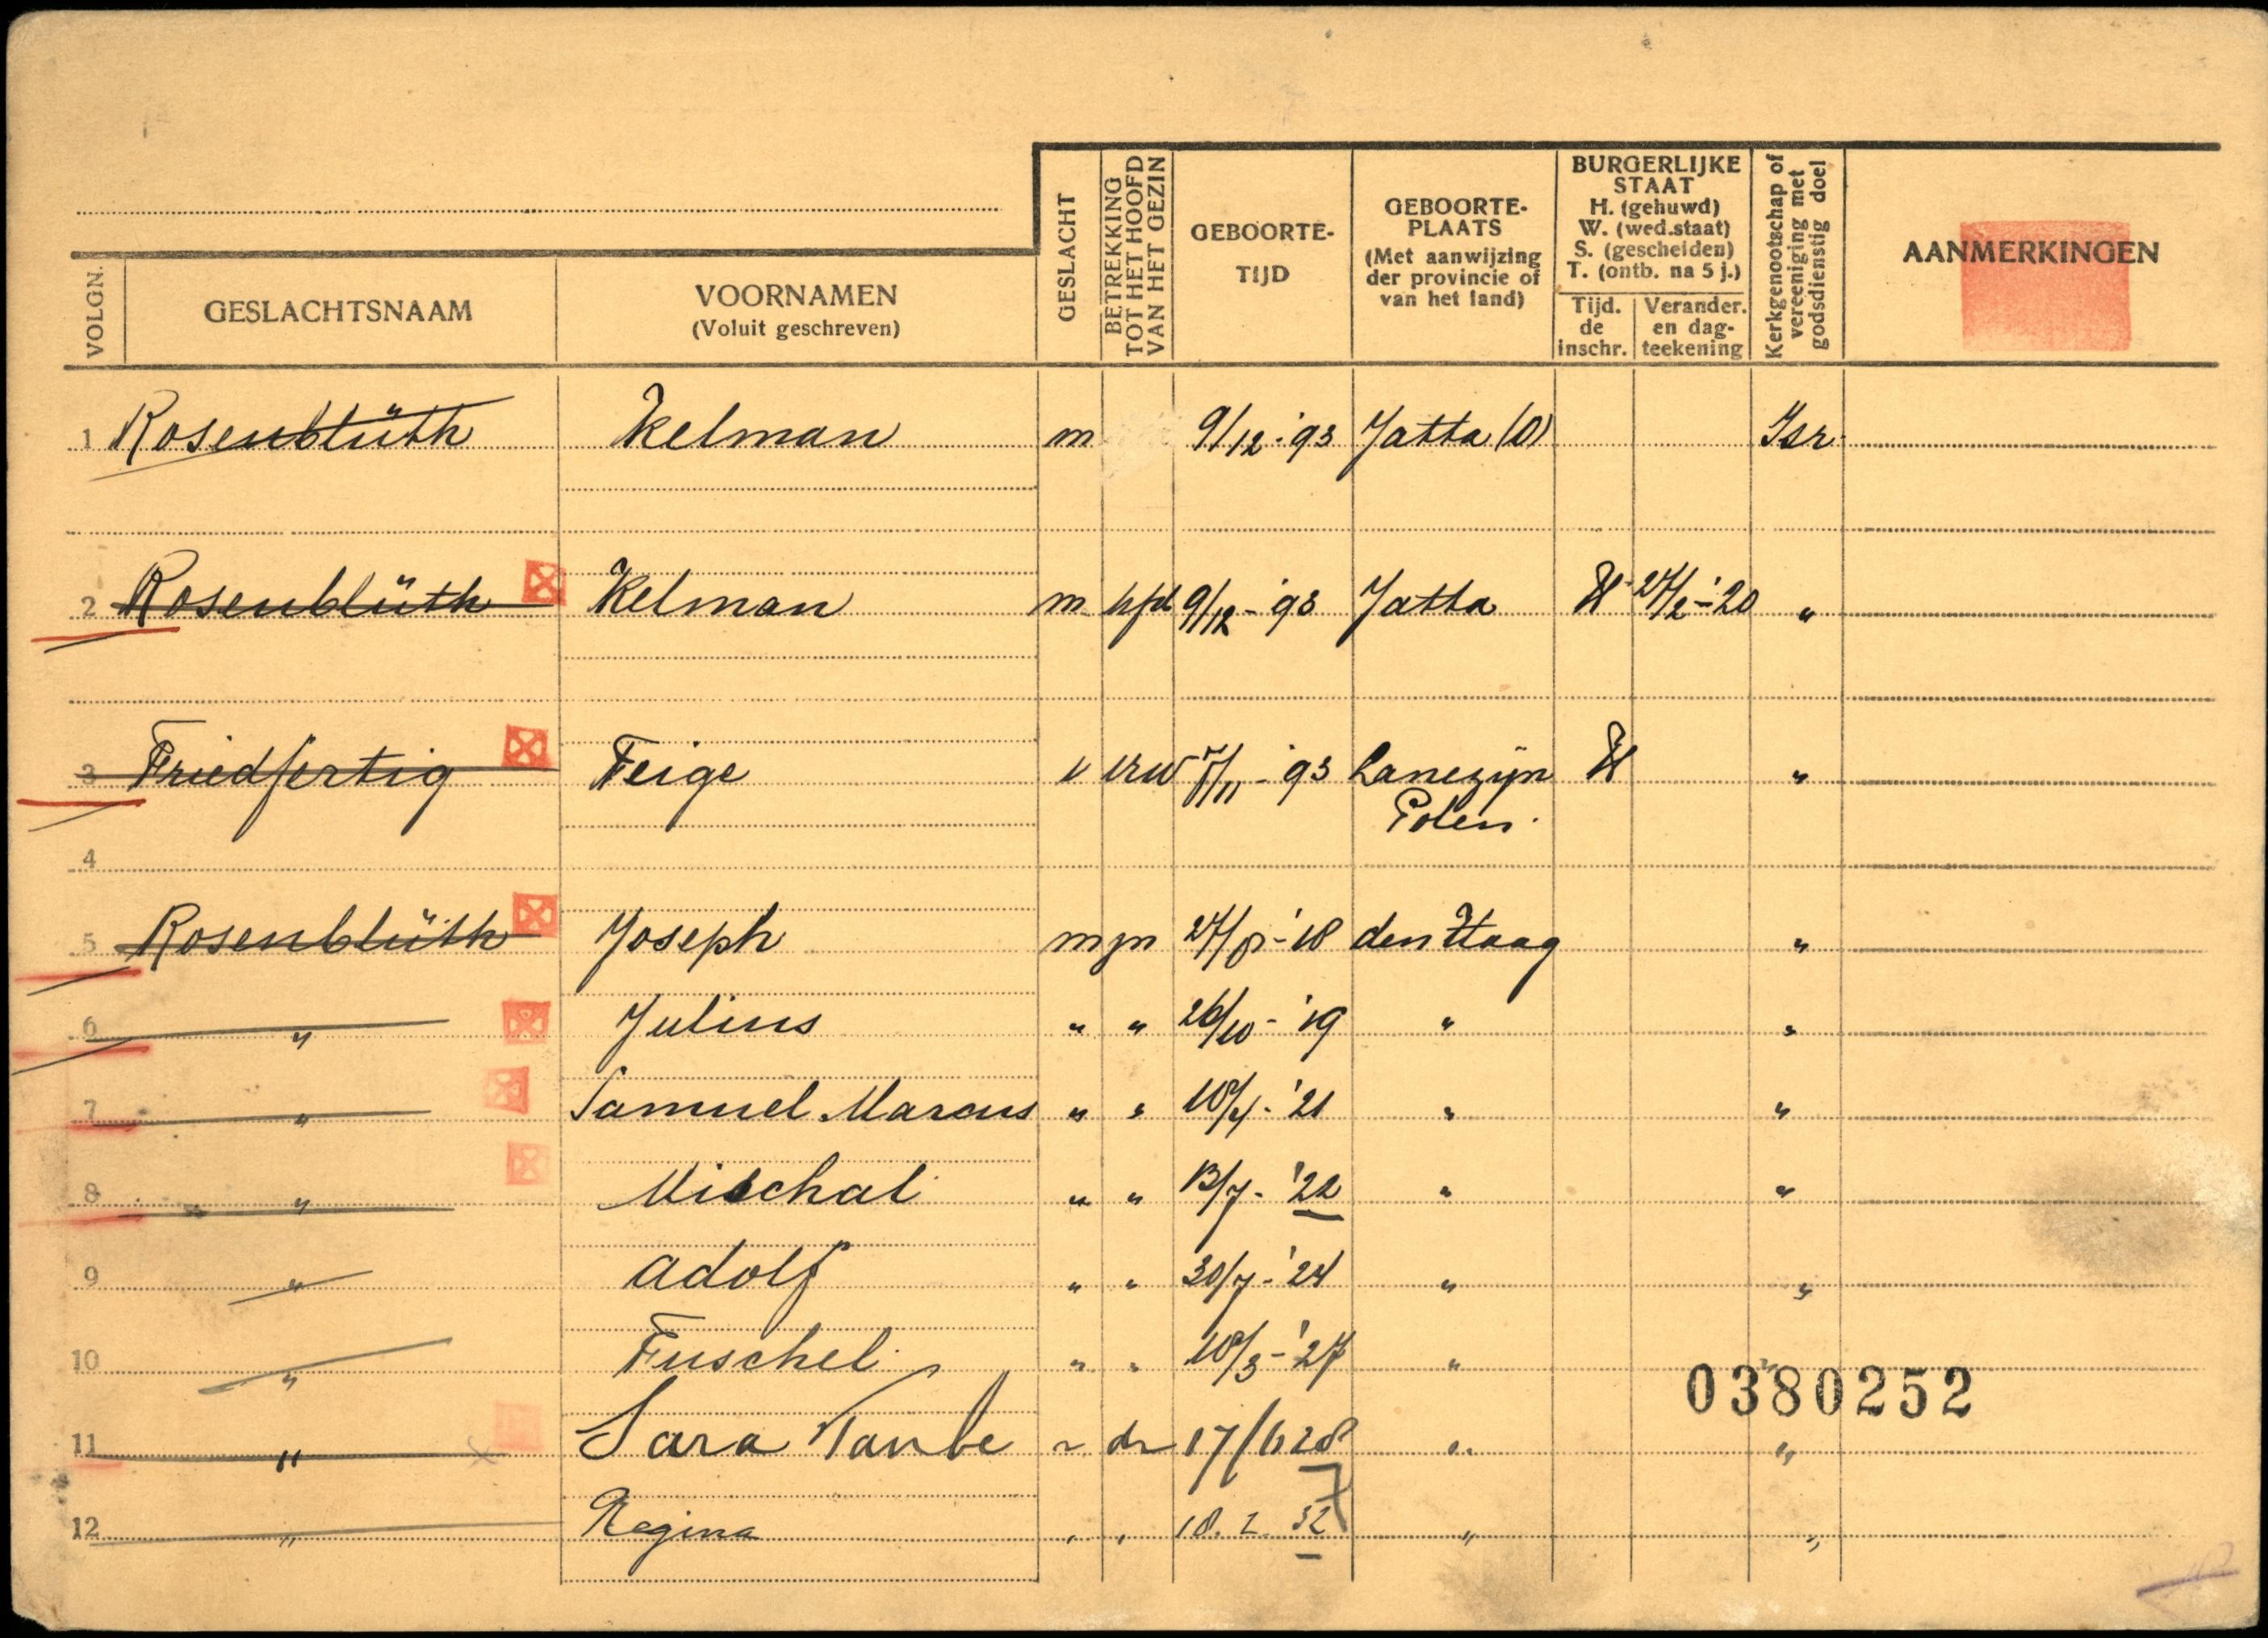 VOLGN. GESLACHTSNAAM VOORNAMEN
(Voluit geschreven)
GESLACHT
BETREKKING
TOT HET HOOFD
VAN HET GEZIN
GEBOORTE-
TIJD
GEBOORTE-
PLAATS
(Met aanwijzing
der provincie of
van het land)
BURGERLIJKE
STAAT
H. (gehuwd)
W. (wed.staat)
S. (gescheiden)
T. (ontb. na 5 j.)
Tijd.
de
inschr.
Verander.
en dag-
teekening
Kerkgenootschap of
vereeniging met
godsdienstig doel
AANMERKINGEN
1 Rosenblüth Kelman m 9/12-'93 Jatta (O) Isr.
2 Rosenblüth Kelman m hfd 9/12-'93 Jatta H 27/2-'20 "
3 Friedfertig Feige v vrw 7/11-'93 Lanezijn H "
Polen.
4
5 Rosenblüth Joseph m zn 27/8-'18 den Haag "
6 " Julius " " 26/10-'19 " "
7 " Samuel Marcus " " 10/4-'21 " "
8 " Mischal " " 13/7-'22 " "
9 " Adolf " " 30/7-'24 " "
10 " Fuschel " " 10/3-'27 " "
0380252
11 " Sara Taube v dr 17/6 28 " "
12 " Regina " " 18.2.32 " "
7